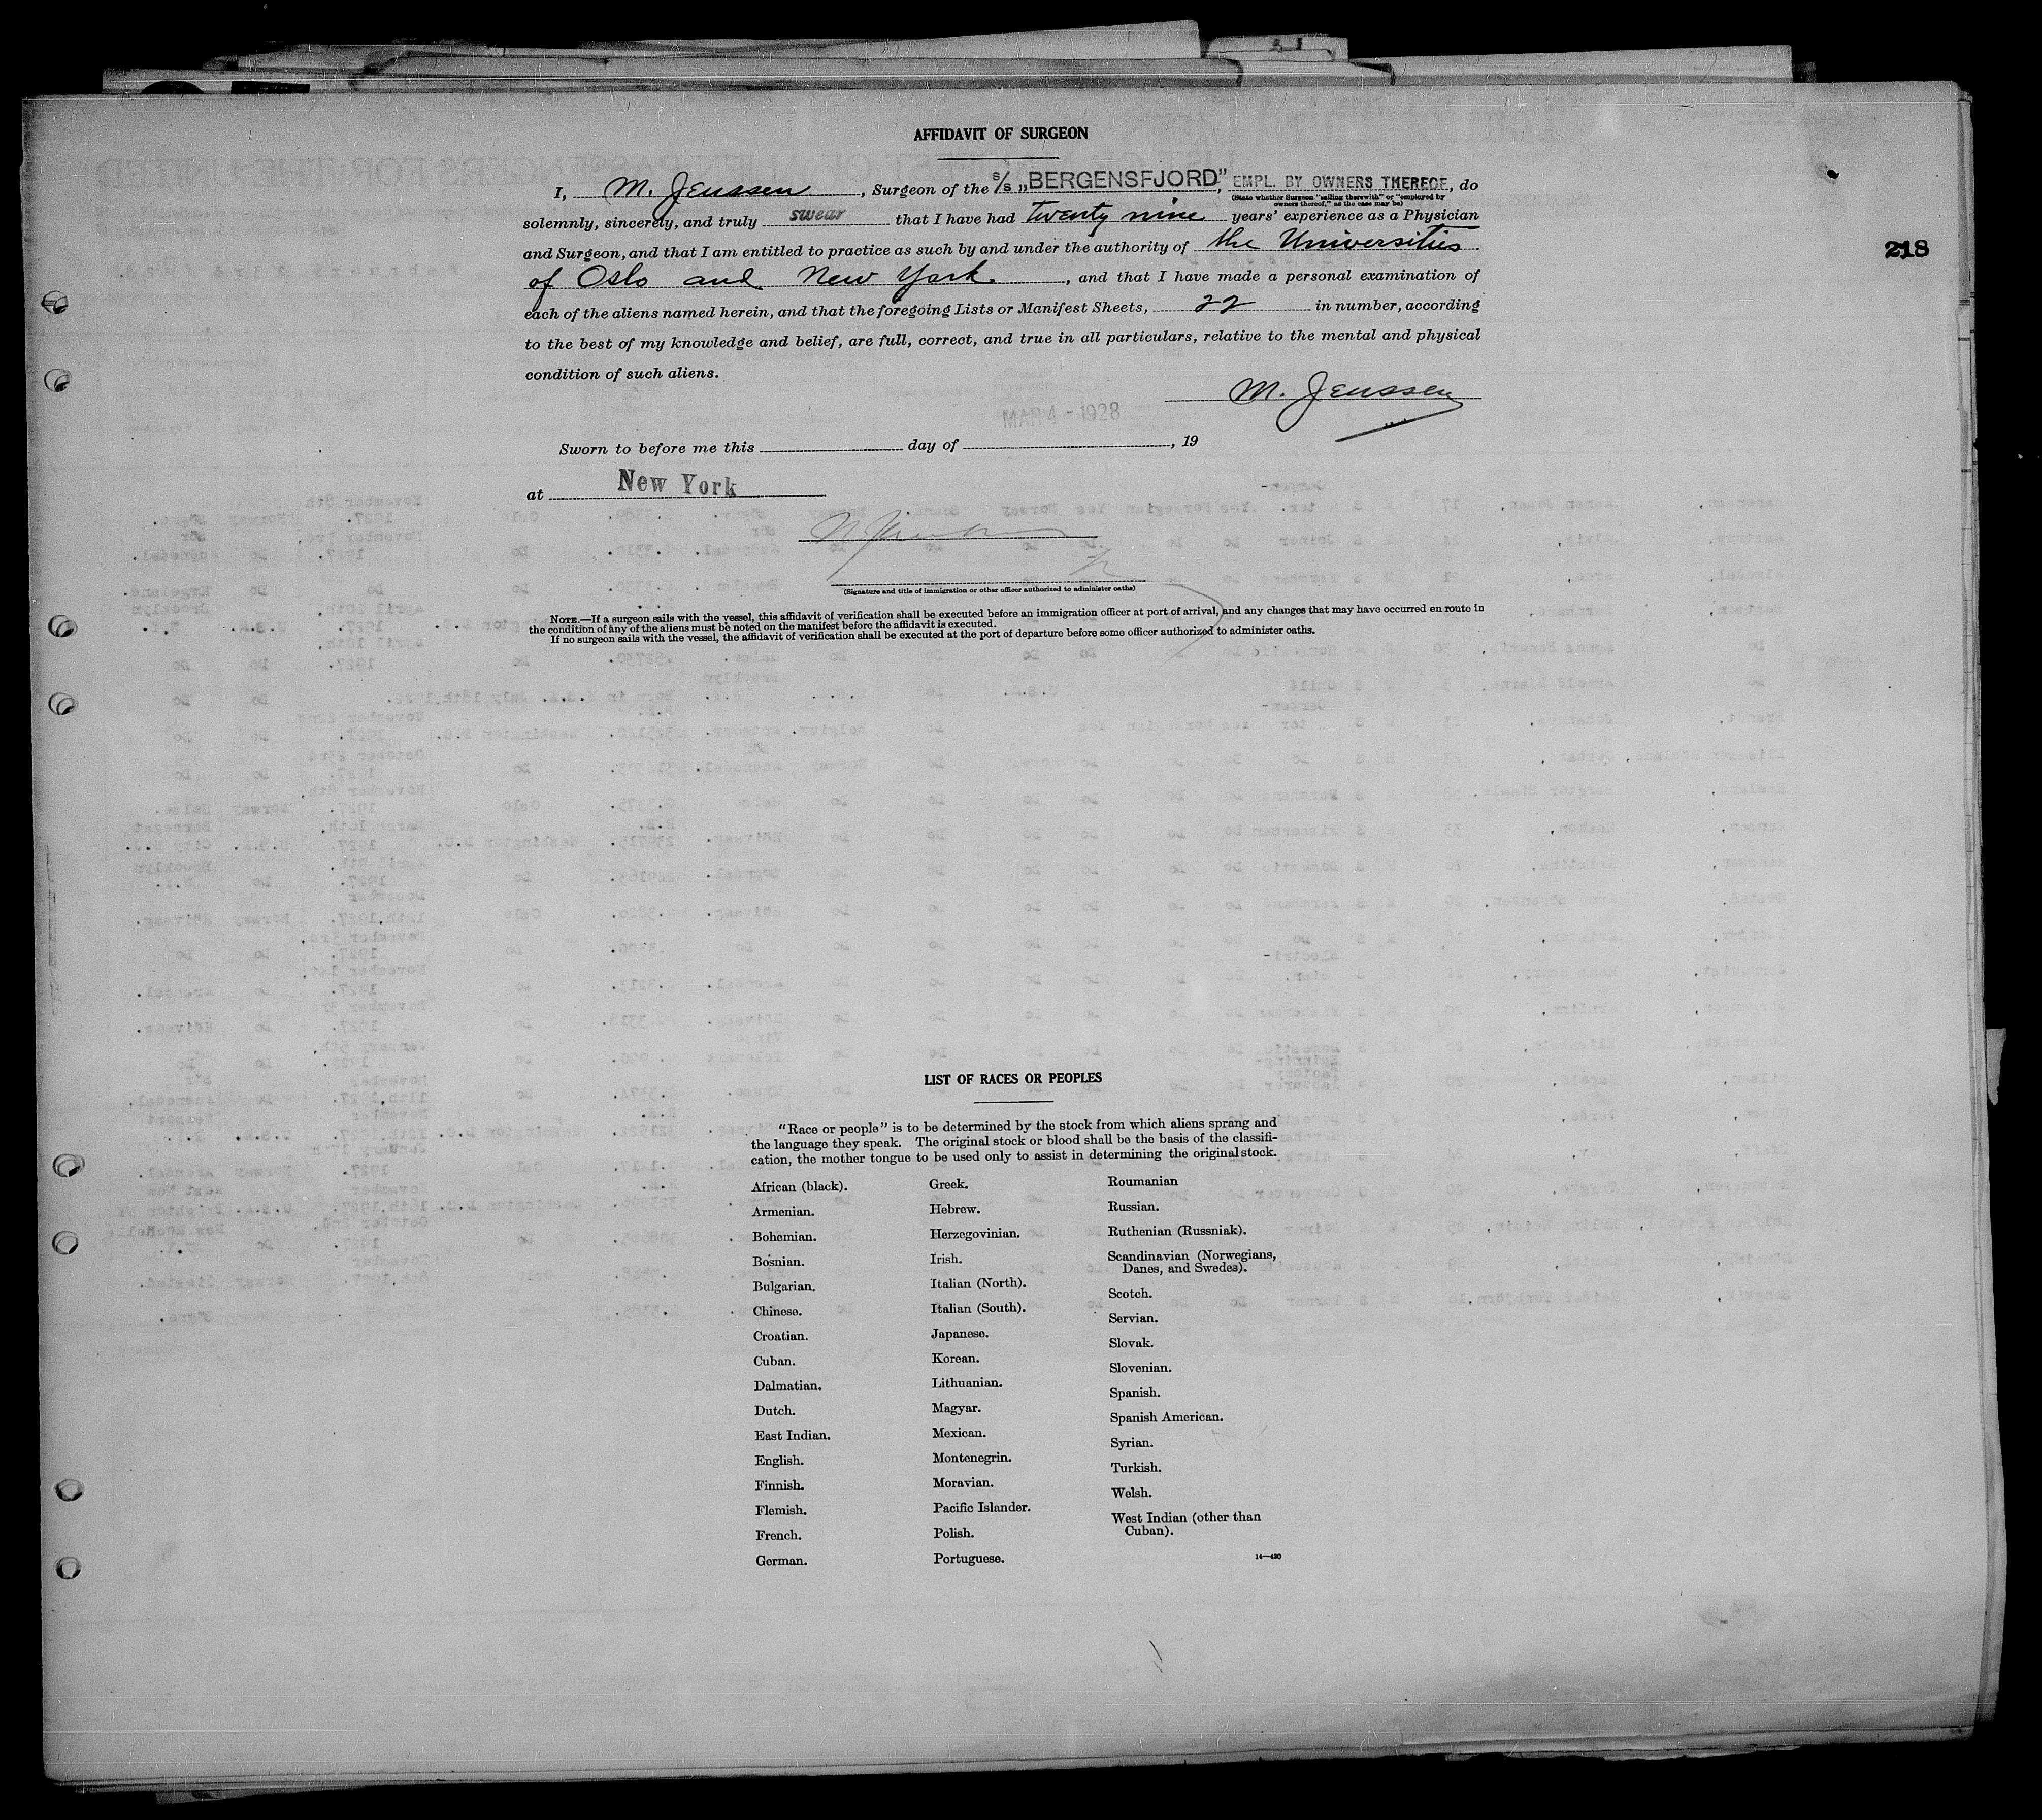 AFFIDAVIT OF SURGEON
218
I, M. Jenssen, Surgeon of the s/s „BERGENSFJORD”, EMPL. BY OWNERS THEREOF, do
(State whether Surgeon "sailing therewith" or "employed by
owners thereof," as the case may be)
solemnly, sincerely, and truly swear that I have had twenty nine years' experience as a Physician
and Surgeon, and that I am entitled to practice as such by and under the authority of the Universities
of Oslo and New York, and that I have made a personal examination of
each of the aliens named herein, and that the foregoing Lists or Manifest Sheets, 22 in number, according
to the best of my knowledge and belief, are full, correct, and true in all particulars, relative to the mental and physical
condition of such aliens.
M. Jenssen
MAR 4 - 1928
Sworn to before me this day of , 19
at New York
(Signature and title of immigration or other officer authorized to administer oaths)
NOTE.—If a surgeon sails with the vessel, this affidavit of verification shall be executed before an immigration officer at port of arrival, and any changes that may have occurred en route in
the condition of any of the aliens must be noted on the manifest before the affidavit is executed.
If no surgeon sails with the vessel, the affidavit of verification shall be executed at the port of departure before some officer authorized to administer oaths.
LIST OF RACES OR PEOPLES
"Race or people" is to be determined by the stock from which aliens sprang and
the language they speak. The original stock or blood shall be the basis of the classifi-
cation, the mother tongue to be used only to assist in determining the original stock.
African (black).
Armenian.
Bohemian.
Bosnian.
Bulgarian.
Chinese.
Croatian.
Cuban.
Dalmatian.
Dutch.
East Indian.
English.
Finnish.
Flemish.
French.
German.
Greek.
Hebrew.
Herzegovinian.
Irish.
Italian (North).
Italian (South).
Japanese.
Korean.
Lithuanian.
Magyar.
Mexican.
Montenegrin.
Moravian.
Pacific Islander.
Polish.
Portuguese.
Roumanian
Russian.
Ruthenian (Russniak).
Scandinavian (Norwegians,
Danes, and Swedes).
Scotch.
Servian.
Slovak.
Slovenian.
Spanish.
Spanish American.
Syrian.
Turkish.
Welsh.
West Indian (other than
Cuban).
14—430